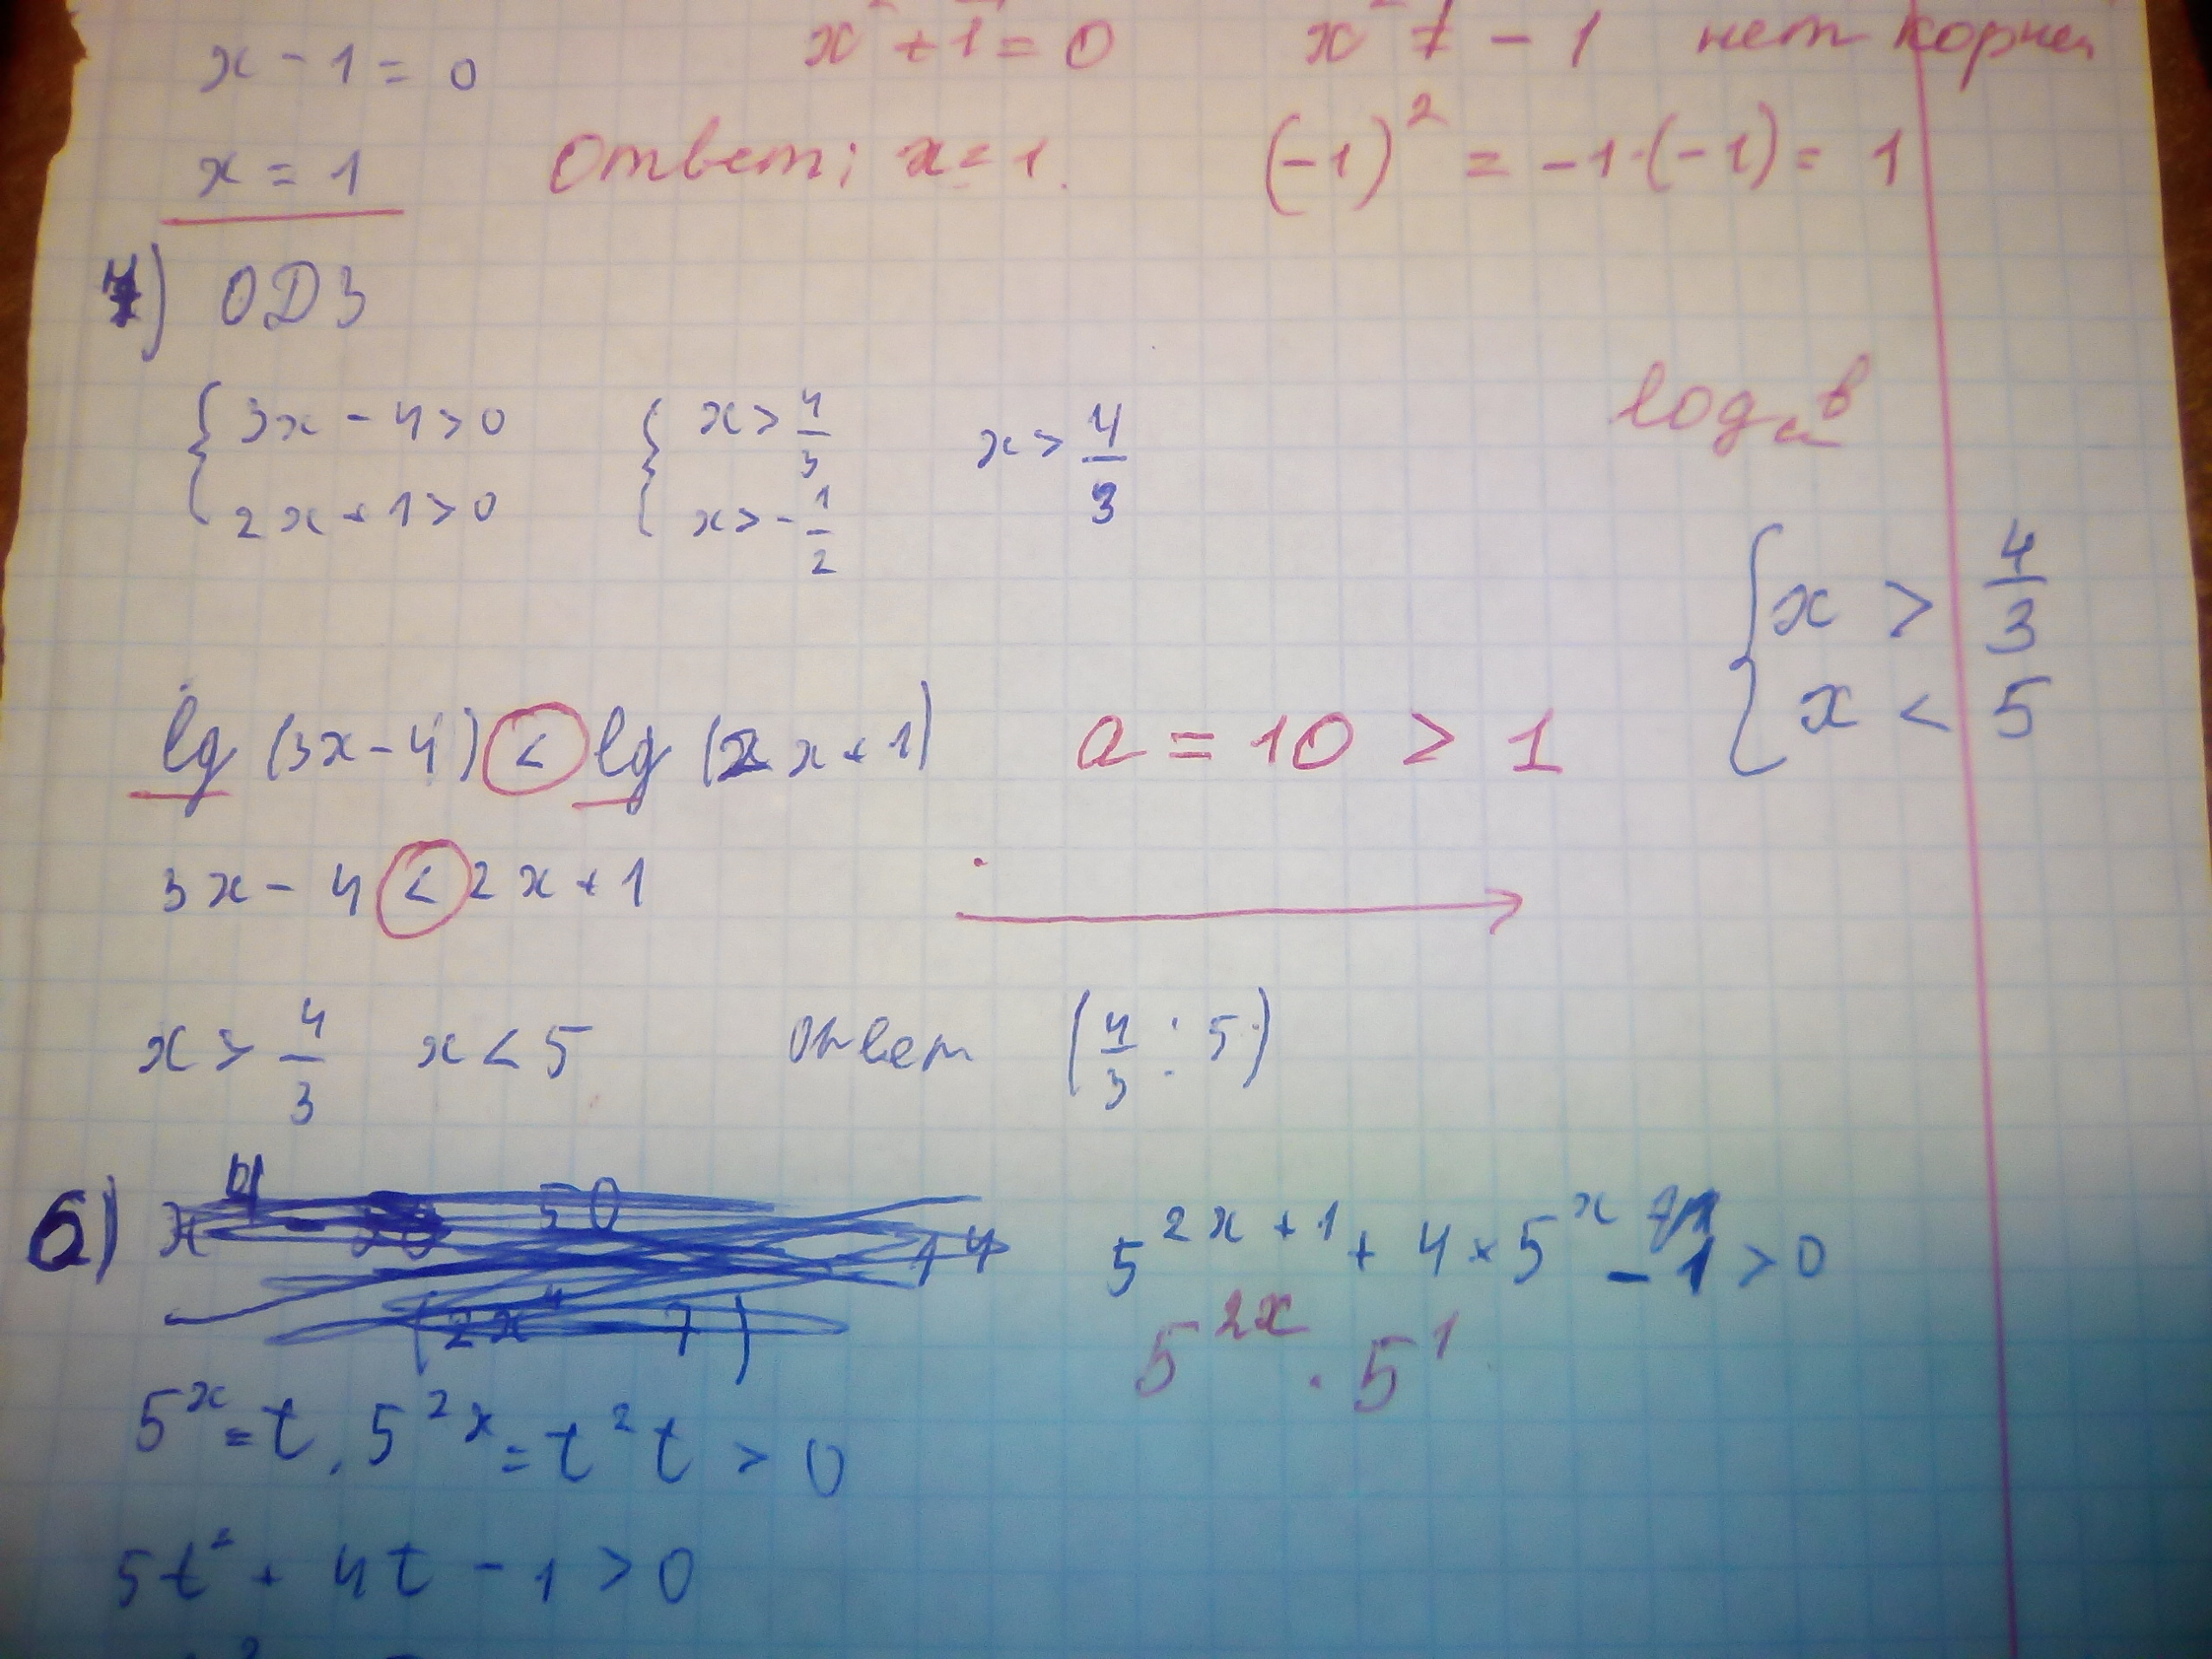 x - 1 = 0
x² + 1 = 0
x² ≠ - 1 нет корней
x = 1
Ответ; x = 1.
(-1)² = -1·(-1) = 1
7) ОДЗ
{ 3x - 4 > 0
2x + 1 > 0
{ x > 4/3
x > - 1/2
x > 4/3
logₐ b
{ x > 4/3
x < 5
lg (3x - 4) < lg (2x + 1)
a = 10 > 1
3x - 4 < 2x + 1
x > 4/3 x < 5 ответ (4/3 ; 5)
6)
5^(2x + 1) + 4 × 5^x - 1 > 0
5^(2x) · 5^1
5^x = t, 5^(2x) = t² t > 0
5t² + 4t - 1 > 0